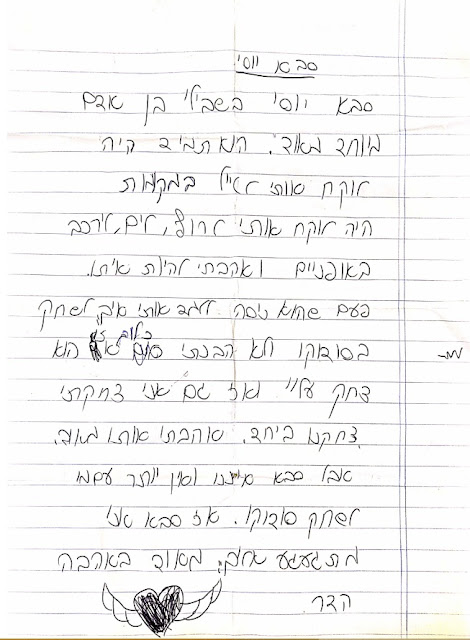 סבא יוסי
סבא יוסי בשבילי בן אדם
מיוחד מאוד. הוא תמיד היה
לוקח אותי לטייל במקומות
היה לוקח אותי לרוץ, לים, לרכב
באופניים ואהבתי להיות איתו.
פעם שהוא ניסה ללמד אותי איך לשחק
בסודוקו ולא הבנתי כלום אז הוא
צחק עליי ואז גם אני צחקתי
צחקנו ביחד. אהבתי אותו מאוד.
אבל סבא איננו ואין יותר עם מי
לשחק סודוקו. אז סבא אני
מתגעגע אליך מאוד באהבה
הדר.